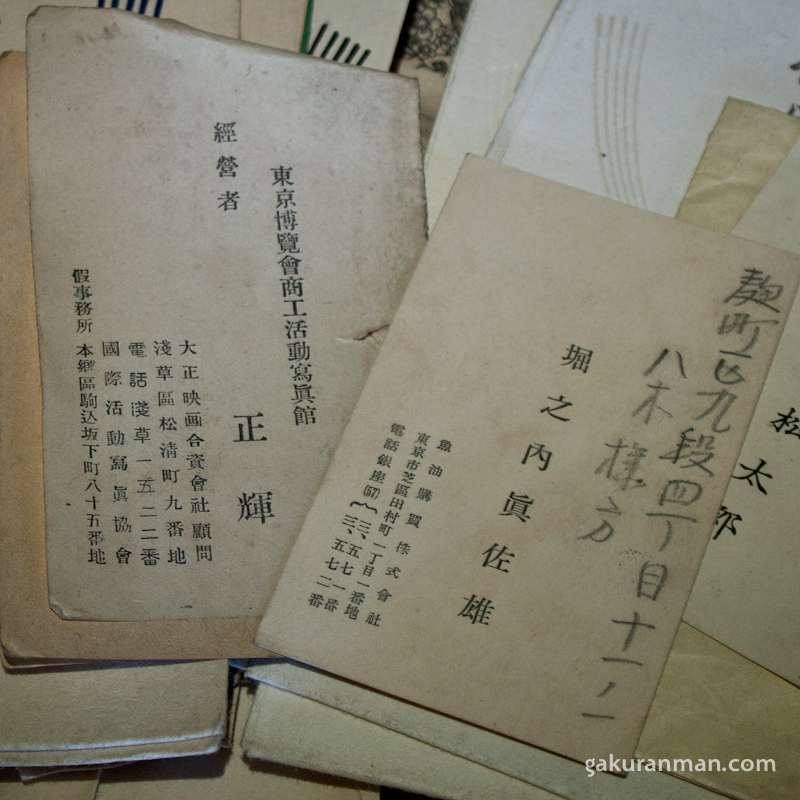 東京博覽會商工活動寫眞館
經營者
正輝
大正映画合資會社顧問
淺草區松淸町九番地
電話淺草一五二二番
國際活動寫眞協會
假事務所 本鄉區駒込坂下町八十五番地
麹町区九段四丁目十一ノ一
八木様方
堀之內眞佐雄
魚油購買株式會社
東京市芝區田村町一丁目一番地
電話銀座(57)
三、五七一番
三、五七二番
松太郎
gakuranman.com